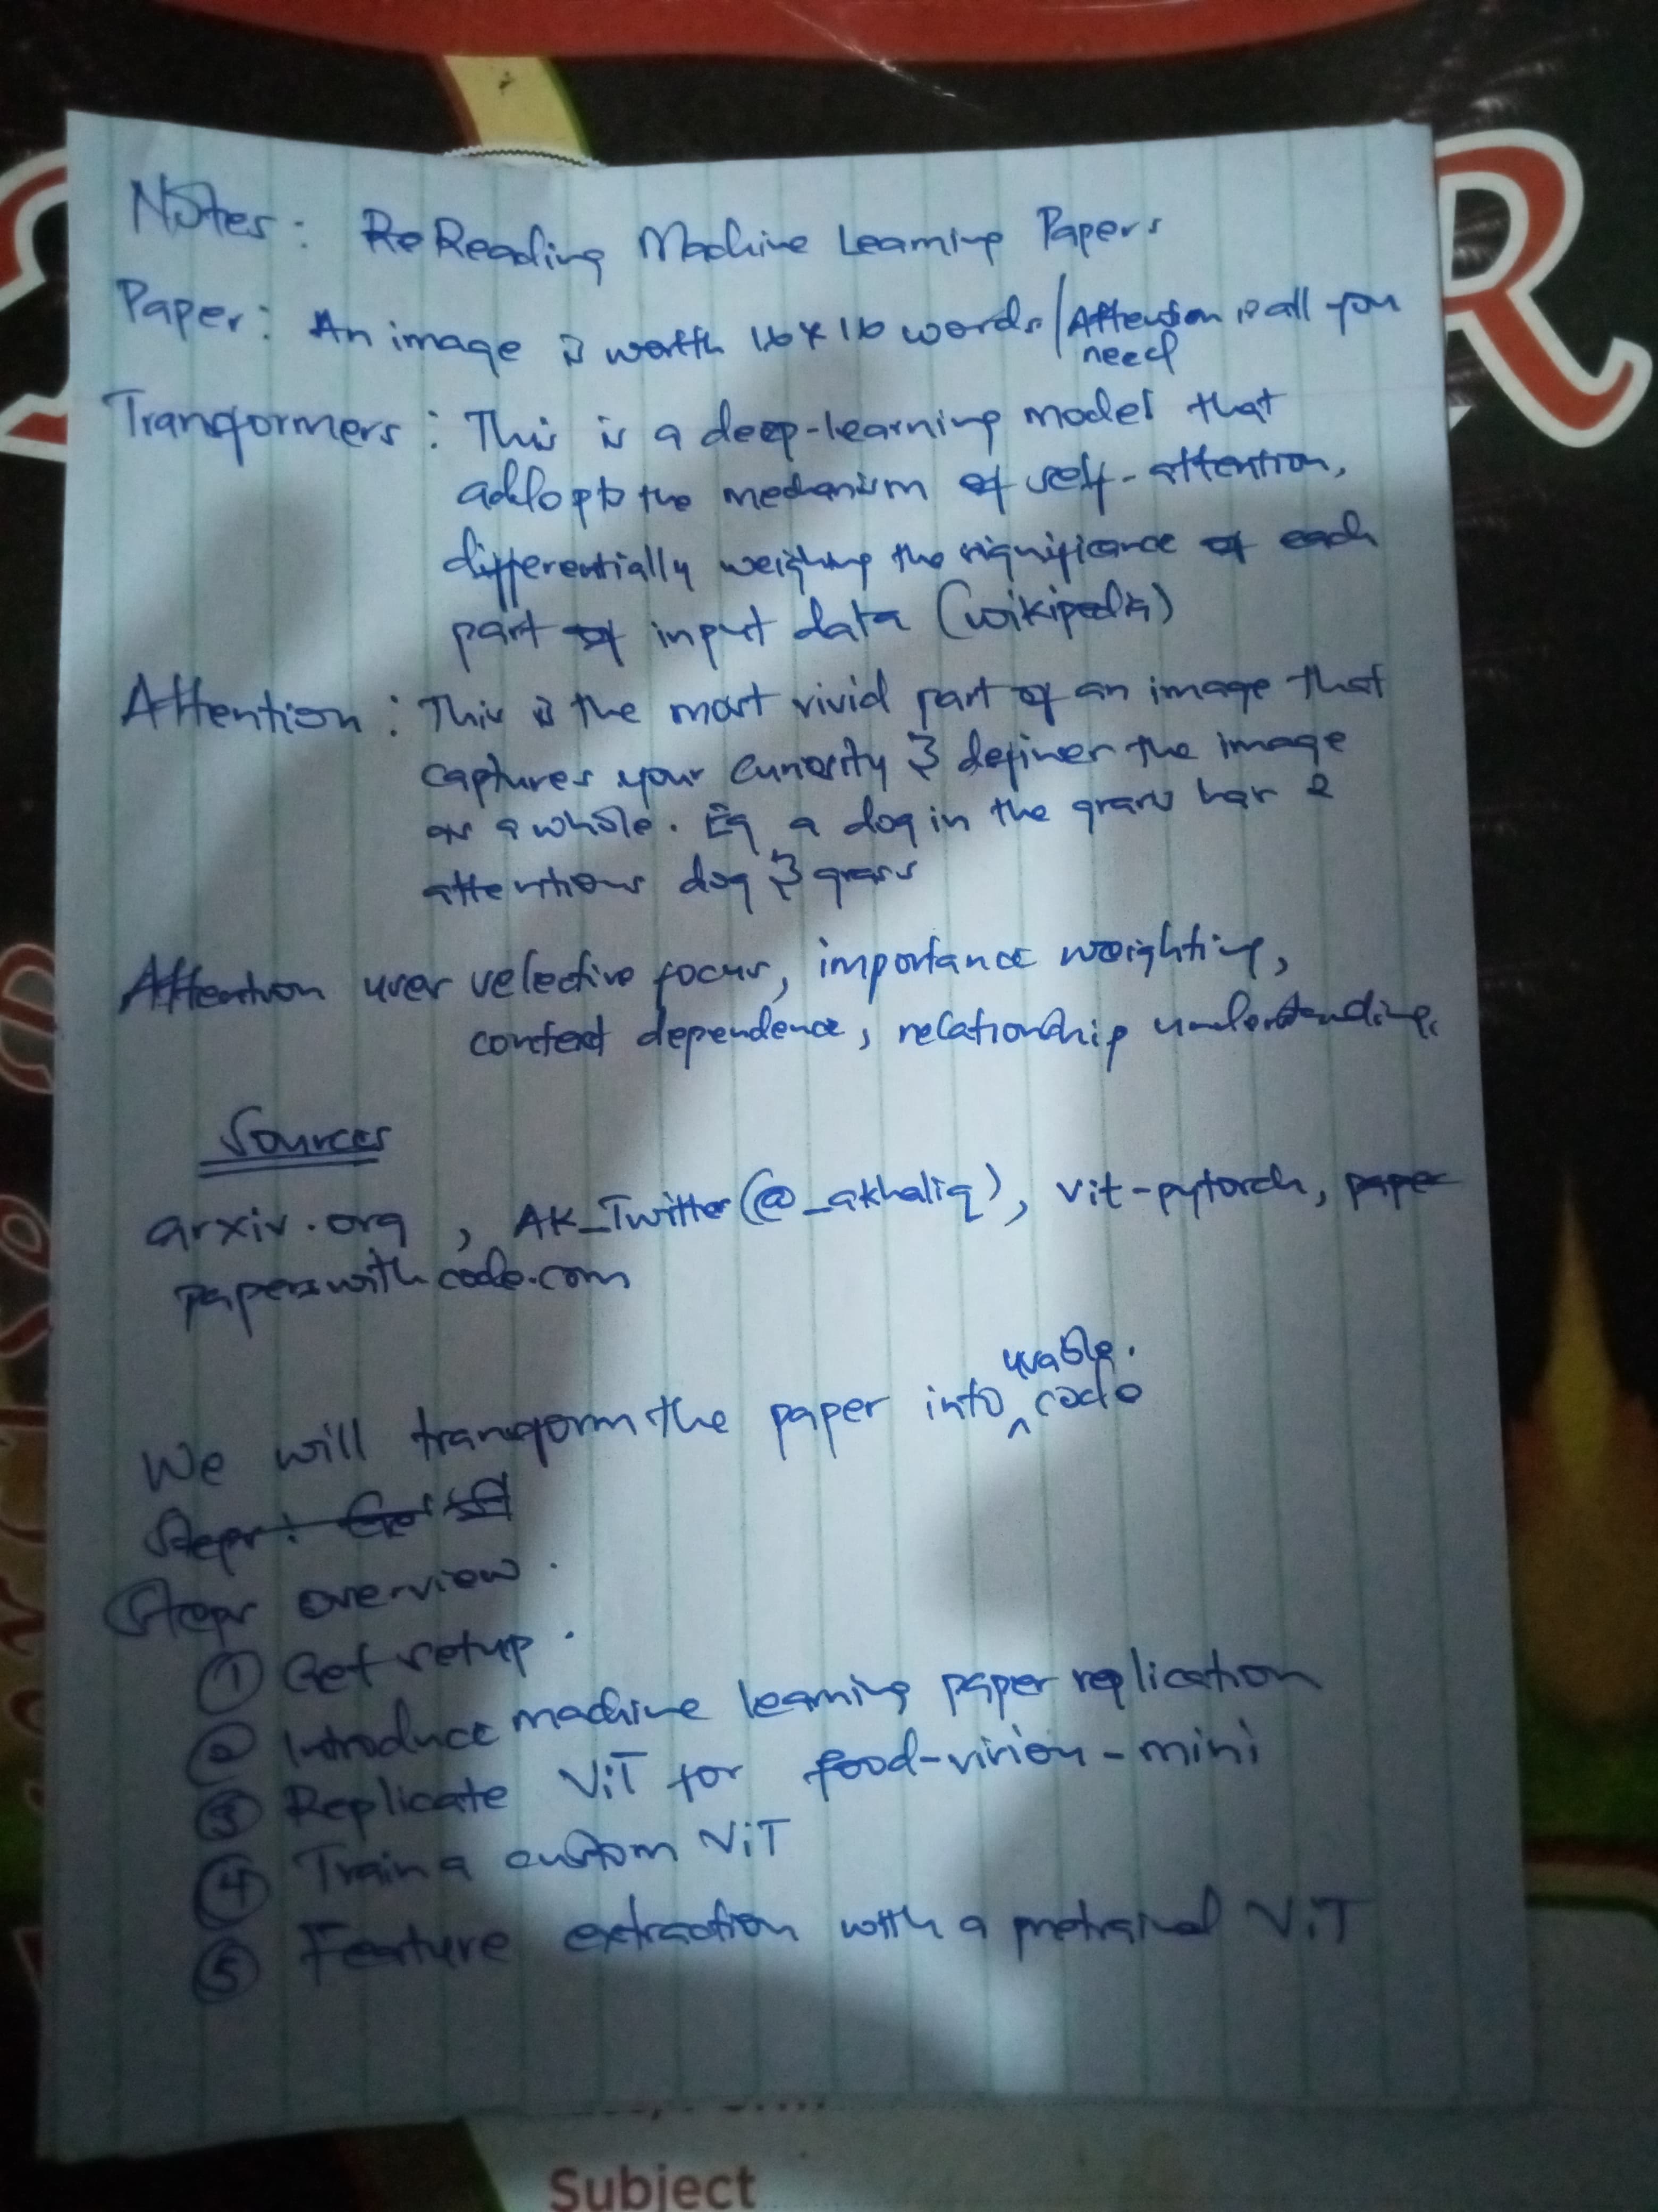 Notes: Reading Machine Learning Papers
Paper: An image is worth 16x16 words / Attention is all you
need
Transformers: This is a deep-learning model that
addopts the mechanism of self-attention,
differentially weighing the significance of each
part of input data (wikipedia)
Attention: This is the most vivid part of an image that
captures your curiosity & defines the image
as a whole. Eg a dog in the grass has 2
attentions dog & grass
Attention uses selective focus, importance weighting,
context dependence, relationship understanding.
Sources
arxiv.org, AK_Twitter (@_akhaliq), vit-pytorch, paper
paperswithcode.com
usable.
We will transform the paper into ^ code
Steps: Get
Steps overview.
① Get setup.
② Introduce machine learning paper replication
③ Replicate ViT for food-vision-mini
④ Train a custom ViT
⑤ Feature extraction with a pretrained ViT
Subject